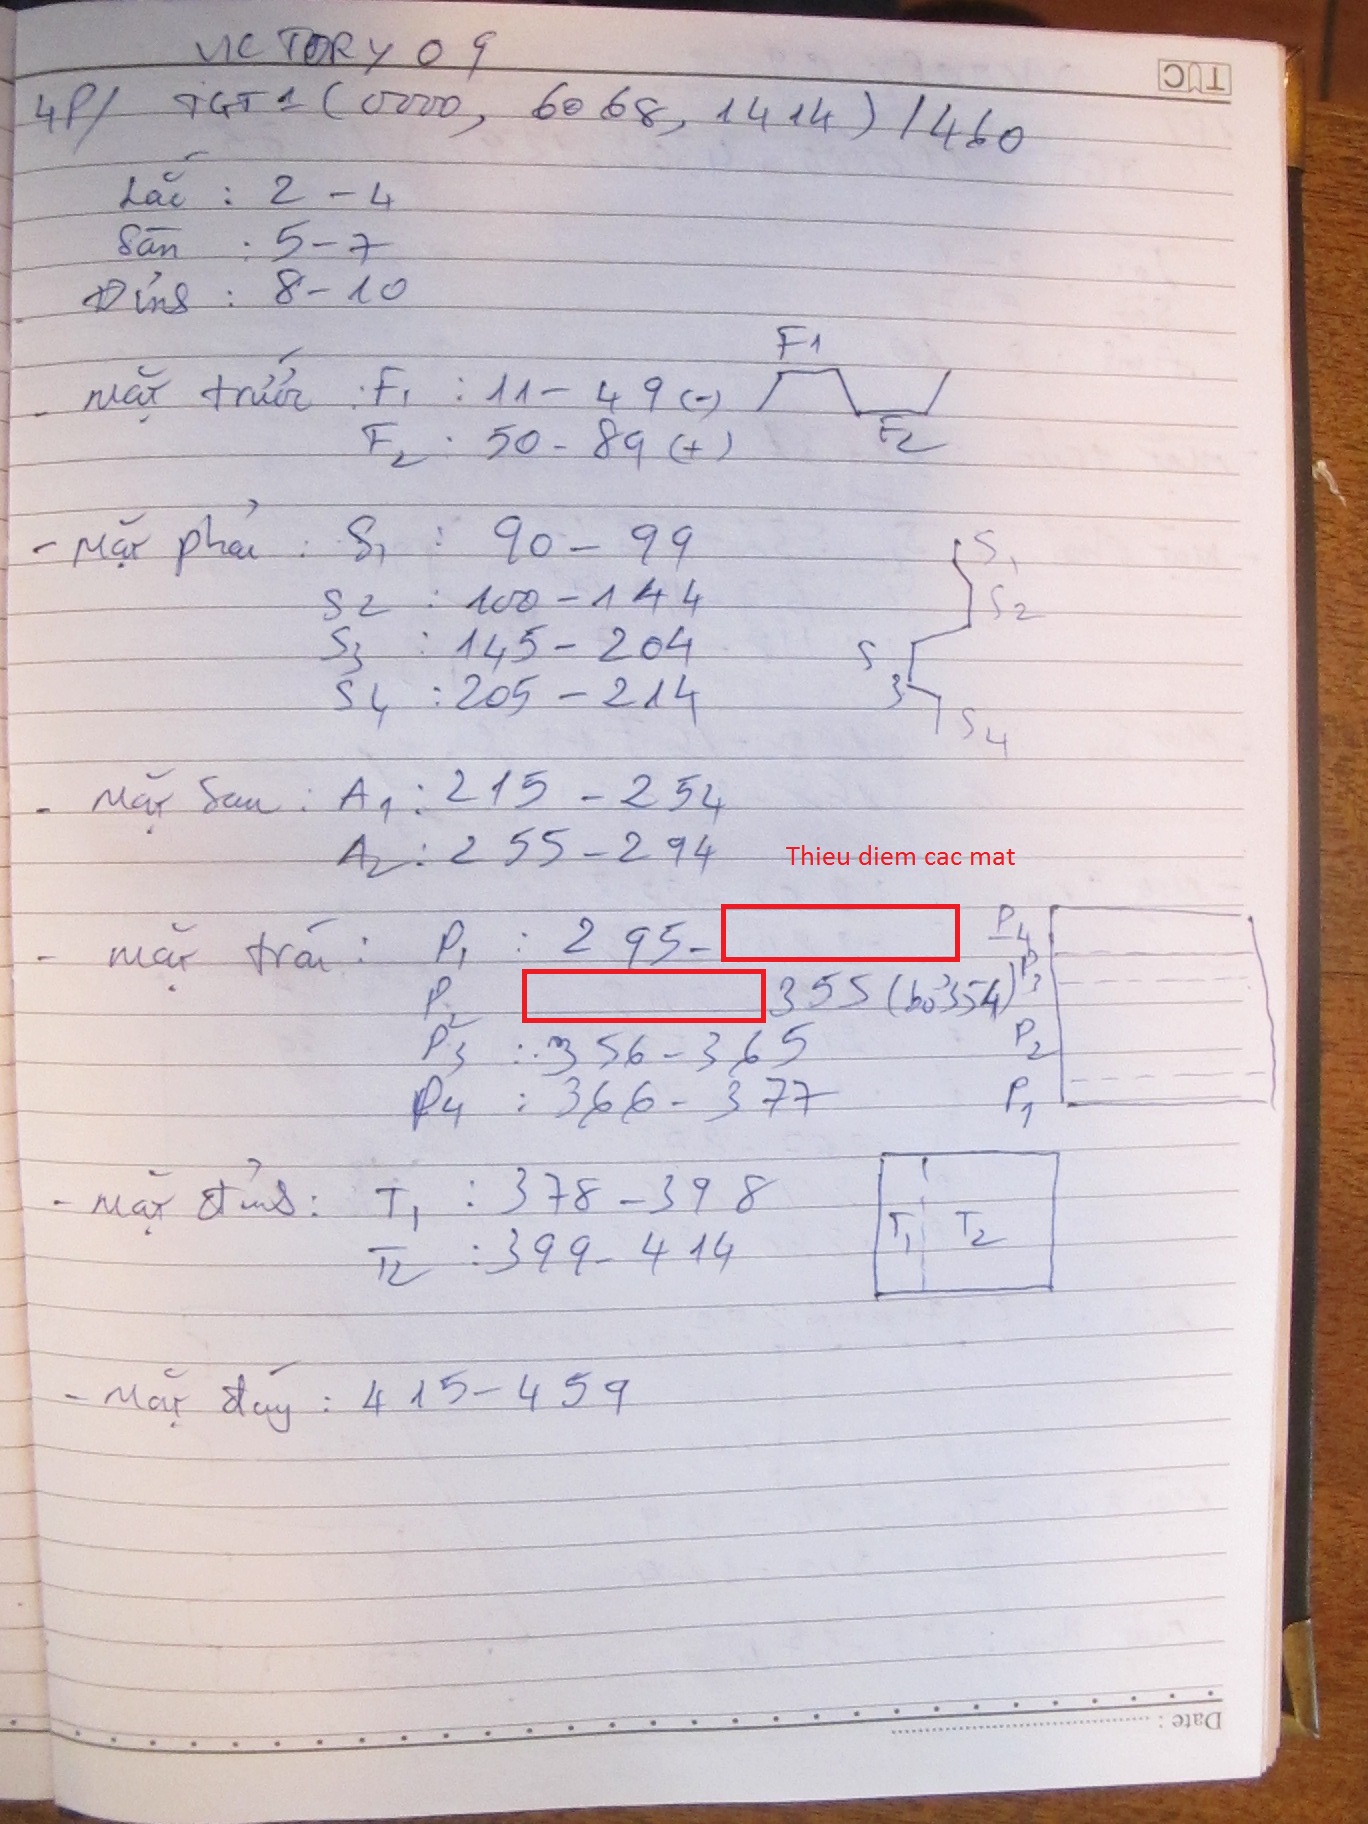 VICTORY 09
TUC
4P/ TGT1 (0000, 6068, 1414) /460
Lắc : 2 - 4
Sàn : 5-7
Đỉnh : 8-10
- Mặt trước : F1 : 11- 49 (-)
F1
F2 : 50 - 89 (+)
F2
- Mặt phải : S1 : 90 - 99
S1
S2 : 100 - 144
S2
S3 : 145 - 204
S3
S4 : 205 - 214
S4
- Mặt sau : A1 : 215 - 254
A2 : 255 - 294
Thieu diem cac mat
- Mặt trái : P1 : 295-
P4
P2 355 (bỏ 354)
P3
P3 : 356 - 365
P2
P4 : 366 - 377
P1
- Mặt đỉnh : T1 : 378 - 398
T2 : 399 - 414
T1 T2
- Mặt đáy : 415 - 459
Date :